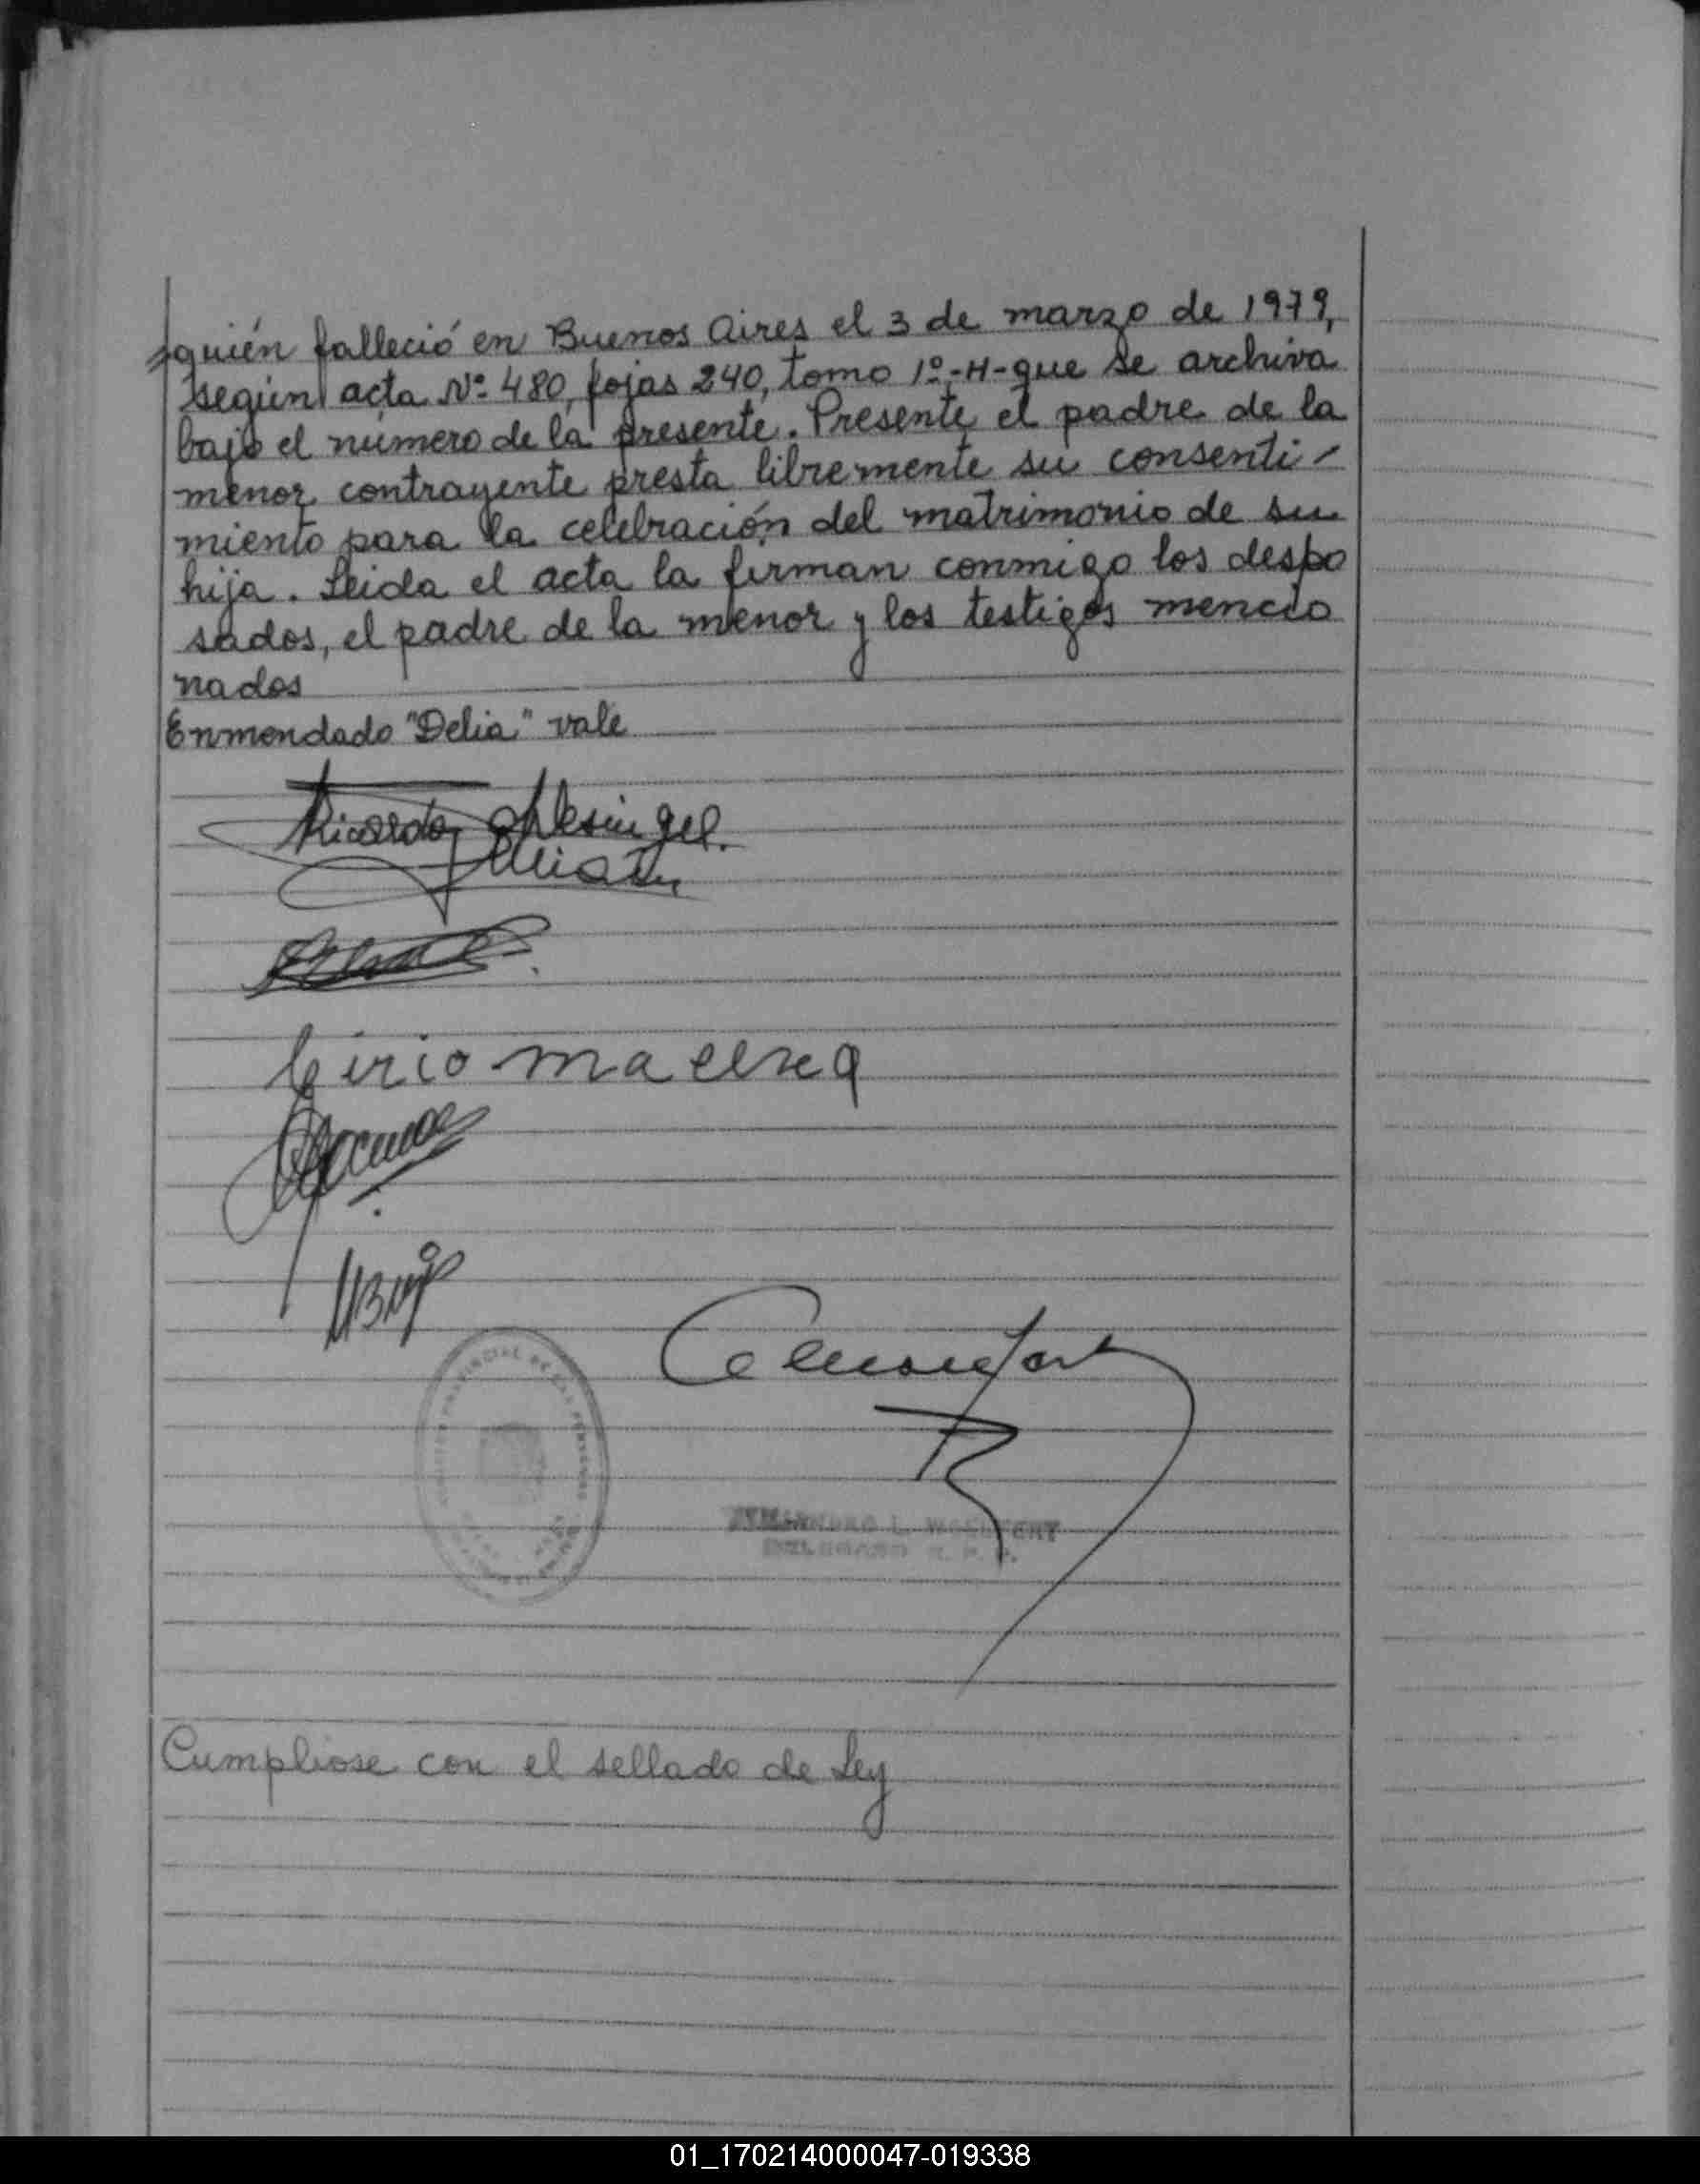 quién falleció en Buenos Aires el 3 de marzo de 1979,
según acta Nº 480, fojas 240, tomo 1º-H-que se archiva
bajo el número de la presente. Presente el padre de la
menor contrayente presta libremente su consenti-
miento para la celebración del matrimonio de su
hija. Leida el acta la firman conmigo los despo
sados, el padre de la menor y los testigos mencio
nados
Enmendado "Delia" vale
Ricardo
Cirio
Cumpliose con el sellado de Ley
01_170214000047-019338